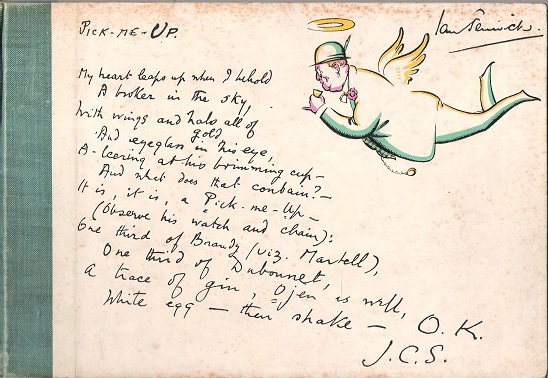 PICK-ME-UP.
Ian Fenwick.
My heart leaps up when I behold
A broker in the sky,
With wings and halo all of
gold
And eyeglass in his eye,
A-leering at his brimming cup-
And what does that contain?-
It is, it is, a Pick-me-Up-
(Observe his watch and chain):
One third of Brandy (viz. Martell),
One third of Dubonnet,
A trace of gin, Ojen, as well,
White egg - then shake - O.K.
J.C.S.